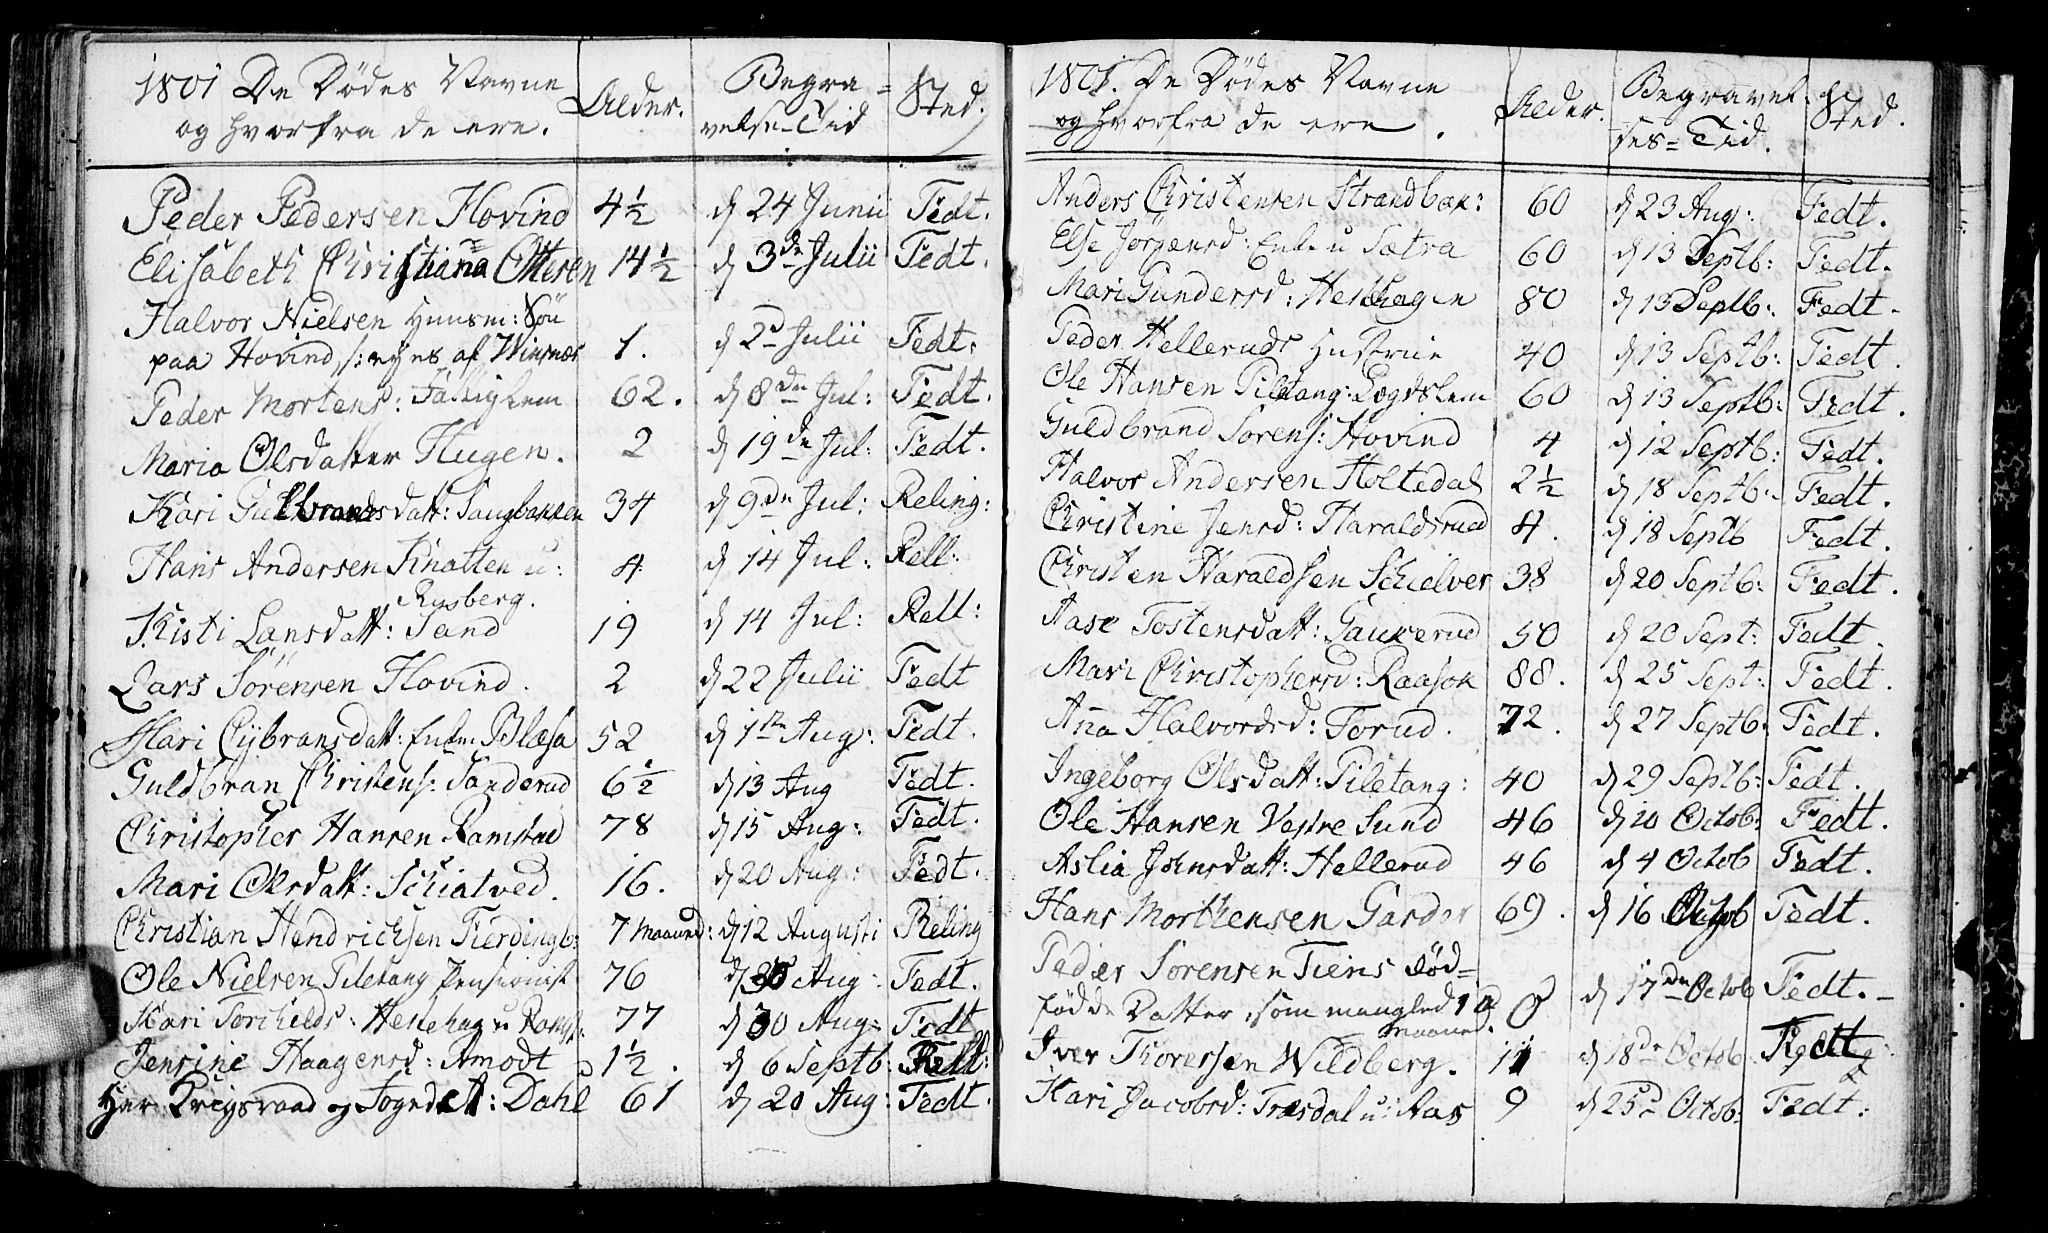 1801 De Dödes Navne
og hvorfra de ere.
Alder.
Begra=
velse-Tid
Sted.
Peder Pedersen Hovind 4½ d 24 Junii Fedt.
Elisabeth Christiana Otteren 14½ d 3de Julii Fedt.
Halvor Nielsen Huusm: Sön
paa Hovind, /: eyes af Winsnæs 1. d 2d Julii Fedt.
Peder Mortens: Fattiglem 62. d 8de Jul: Fedt.
Maria Olsdatter Haugen. 2 d 19de Jul: Fedt.
Kari Gulbrandsdatt: Saugbanken 34 d 9de Jul: Reling:
Hans Andersen Knatten u: 4 d 14 Jul: Rell:
Rysberg.
Kisti Larsdatt: Sand 19 d 14 Jul: Rell:
Lars Sörensen Hovind. 2 d 22 Julii Fedt
Kari Cybransdatt: Enke Blæsa 52 d 1ste Aug: Fedt.
Guldbran Christens: Sanderud 6½ d 13 Aug Fedt.
Christopher Hansen Ramstad 78 d 15 Aug: Fedt.
Mari Olsdatt: Schiatved. 16. d 20 Aug: Fedt.
Christian Hendrichsen Fierdingb: 7 Maaned: d 12 Augusti Reling
Ole Nielsen Piletang Pensionist 76 d 30 Aug: Fedt.
Kari Torchilds: Hestehag u 77 d 30 Aug: Fedt
Jensine Haagensd: Amodt 1½. d 6 Septb: Rell:
Herr Krigsraad og Foged A: Dahl 61 d 20 Aug: Fedt.
1801. De Dödes Navne
og hvorfra de ere.
Alder.
Begravel-
ses=Tid.
Sted.
Anders Christensen Strandbak: 60 d 23 Aug: Fedt.
Else Jörgensd: Enke u Sætra 60 d 13 Septb: Fedt.
Mari Gundersd: Hesthagen 80 d 13 Septb: Fedt.
Peder Helleruds Hustrue 40 d 13 Septb: Fedt.
Ole Hansen Piletang: Lægdslem 60 d 13 Septb: Fedt.
Guldbrand Sörens: Hovind 4 d 12 Septb: Fedt.
Halvor Andersen Holtedal 2½ d 18 Septb: Fedt.
Christine Jensd: Haraldsrud 4. d 18 Septb Fedt.
Christen Haraldsen Schielver 38 d 20 Septb: Fedt.
Aase Tostensdatt: Gaukerud 50 d 20 Sept: Fedt.
Mari Christophersd: Raasok 88. d 25 Sept: Fedt.
Anna Halvordsd: Torud. 72. d 27 Septb: Fedt.
Ingeborg Olsdatt: Piletang: 40 d 29 Septb: Fedt.
Ole Hansen Vestre Sund 46 d 10 Octob: Fedt.
Aslia Johnsdatt: Hellerud 46 d 4 Octob Fedt.
Hans Morthensen Garder 69. d 16 Octob Fedt.
Peder Sörensen Tiens död=
födde Datter, som manglede 1 0 d 17de Octob Fedt.
Maaned.
Iver Thoressen Wildberg. 11 d 18de Octob Fedt
Kari Jacobsd: Træsdal u: Aas 9 d 25d Octob: Fedt.